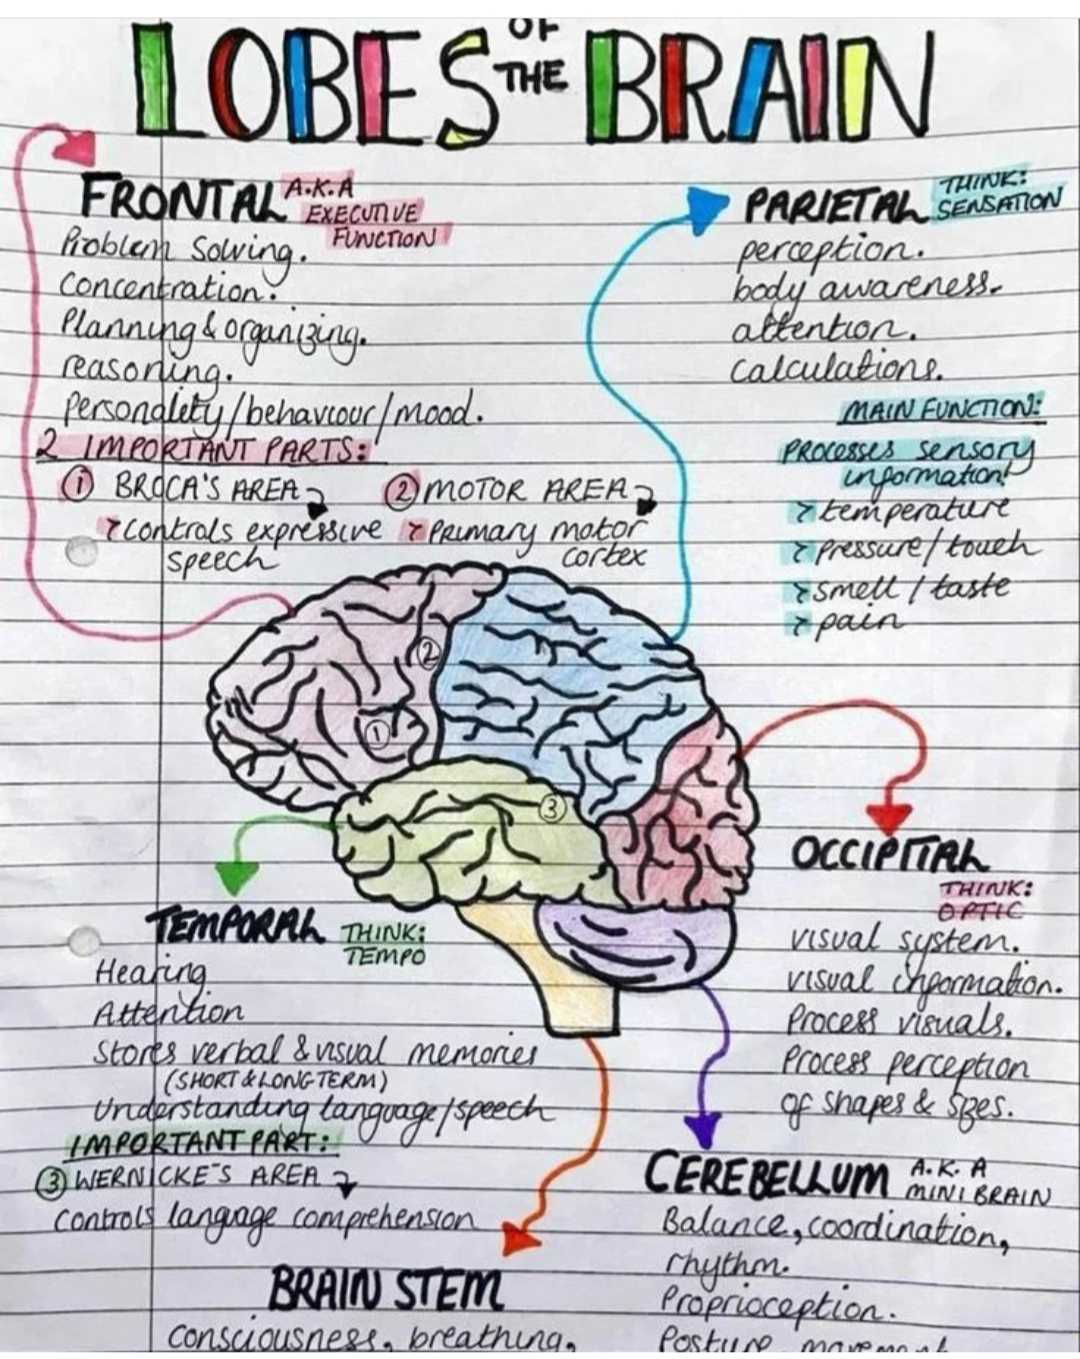 LOBES OF THE BRAIN
FRONTAL A.K.A
EXECUTIVE
FUNCTION
Problem Solving.
Concentration.
Planning & organizing.
reasoning.
Personalety/behaviour/mood.
2 IMPORTANT PARTS:
① BROCA'S AREA
→ Controls expressive
speech
② MOTOR AREA
→ Primary motor
cortex
PARIETAL THINK:
SENSATION
perception.
body awareness.
attention.
calculations.
MAIN FUNCTION:
PROCESSES sensory
information!
→ temperature
→ pressure/touch
→ smell / taste
→ pain
②
①
③
OCCIPITAL
THINK:
OPTIC
visual system.
visual information.
Process visuals.
Process perception
of shapes & sizes.
TEMPORAL THINK:
TEMPO
Hearing
Attention
Stores verbal & visual memories
(SHORT & LONG TERM)
Understanding language/speech
IMPORTANT PART:
③ WERNICKE'S AREA
Controls langage comprehension
CEREBELLUM A.K.A
MINI BRAIN
Balance, coordination,
rhythm.
Proprioception.
Posture, movement
BRAIN STEM
consciousness, breathing,